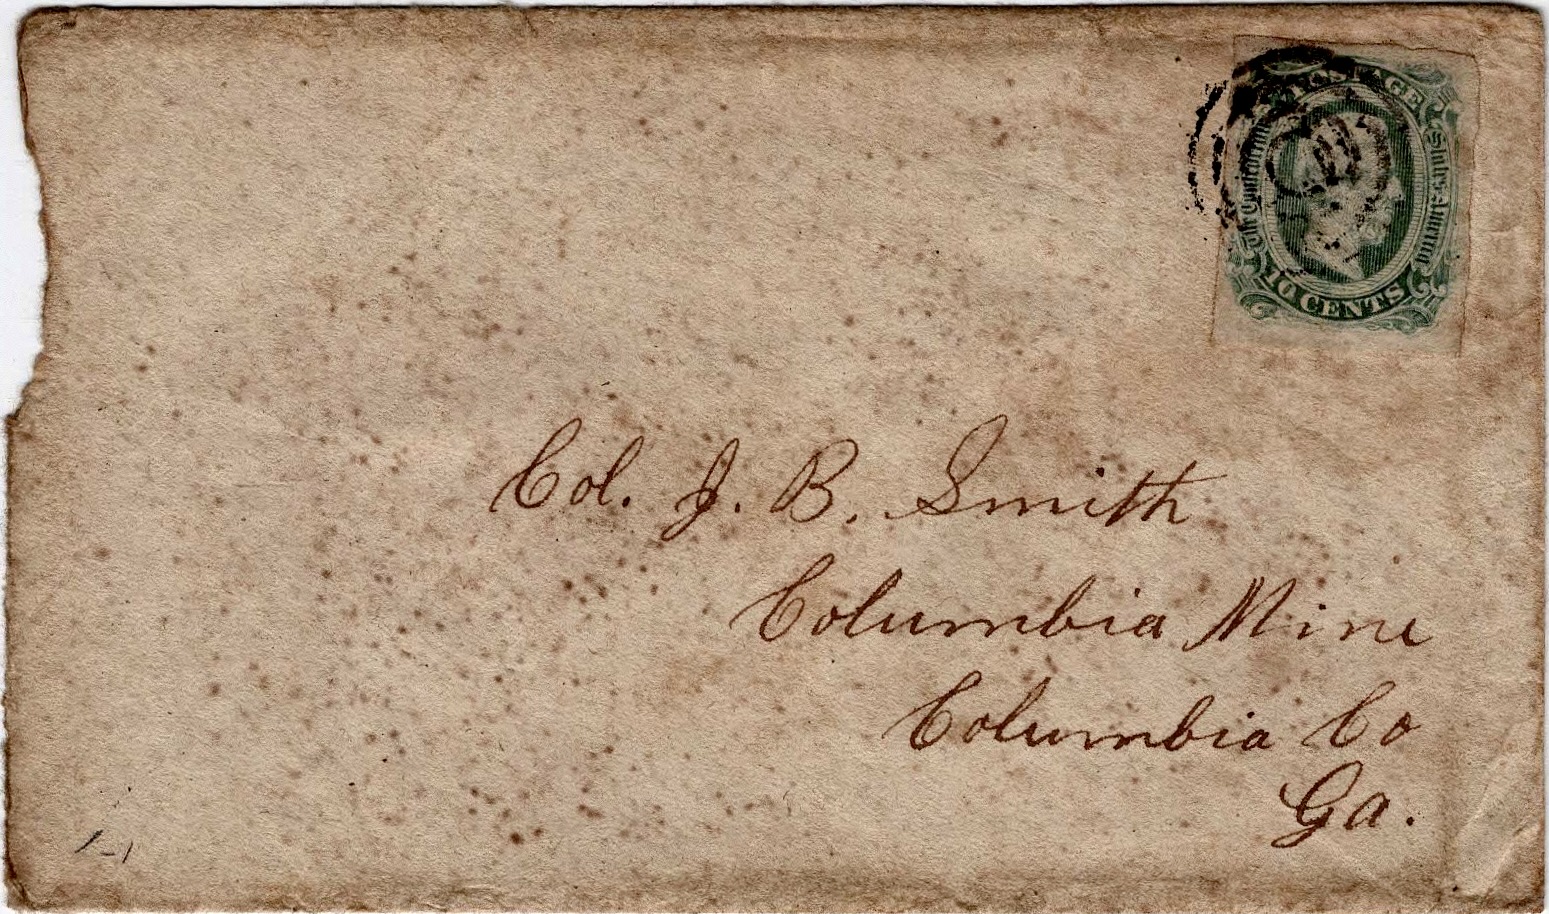 POSTAGE
The Confederate States of America
10 CENTS
Col. J. B. Smith
Columbia Mine
Columbia Co
Ga.